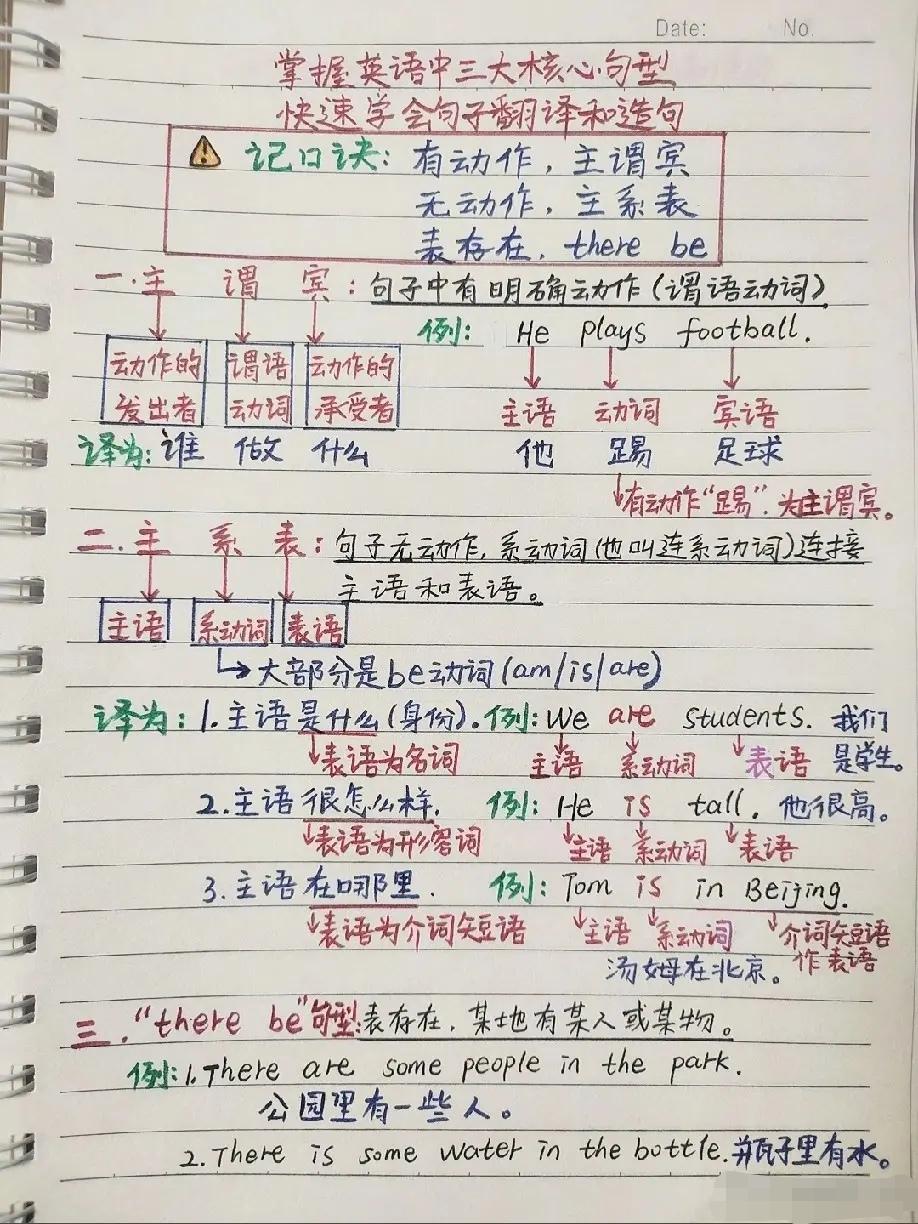 Date: No.
掌握英语中三大核心句型
快速学会句子翻译和造句
记口诀：有动作，主谓宾
无动作，主系表
表存在，there be
一.主 谓 宾：句子中有明确动作（谓语动词）
例：He plays football.
动作的 谓语 动作的
发出者 动词 承受者 主语 动词 宾语
译为：谁 做 什么 他 踢 足球
有动作“踢”.为主谓宾。
二.主 系 表：句子无动作，系动词(也叫连系动词)连接
主语和表语。
主语 系动词 表语
大部分是be动词(am/is/are)
译为：1.主语是什么(身份).例：We are students. 我们
表语为名词 主语 系动词 表语 是学生。
2.主语很怎么样. 例：He is tall. 他很高。
表语为形容词 主语 系动词 表语
3.主语在哪里. 例：Tom is in Beijing.
表语为介词短语 主语 系动词 介词短语
作表语
汤姆在北京。
三.“there be”句型:表存在，某地有某人或某物。
例：1.There are some people in the park.
公园里有一些人。
2.There is some water in the bottle.瓶子里有水。